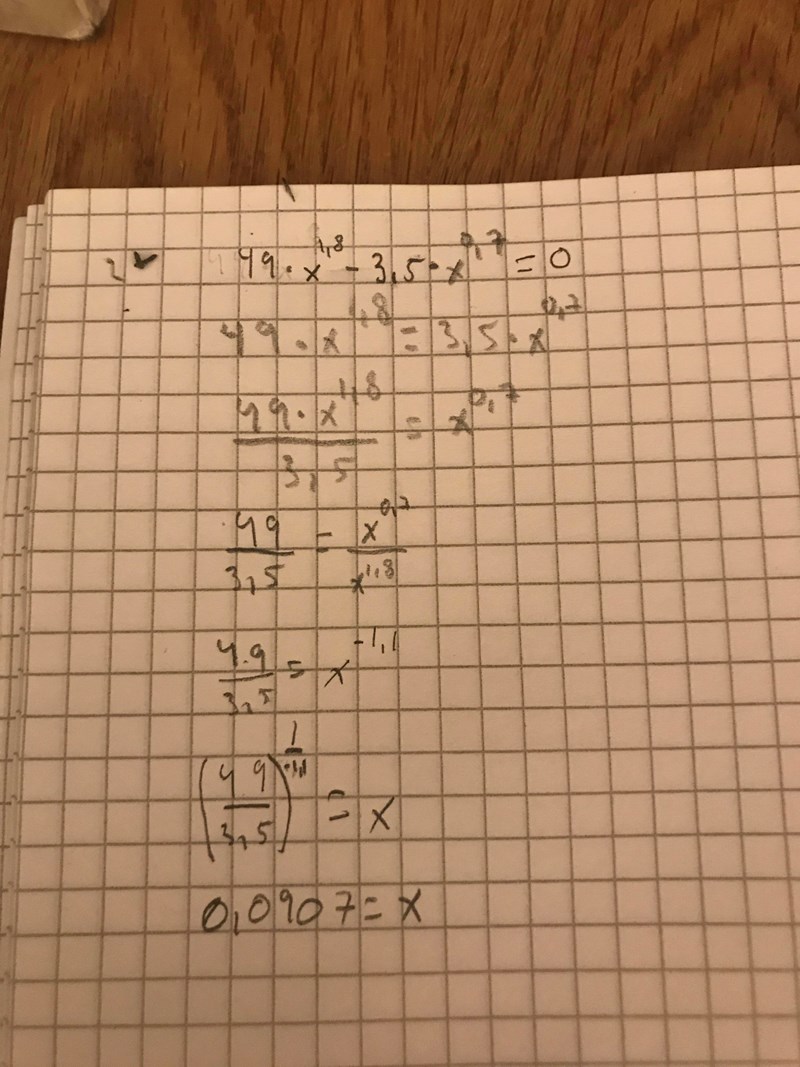 2 49·x^1,8 - 3,5·x^0,7 = 0
49·x^1,8 = 3,5·x^0,7
49·x^1,8 / 3,5 = x^0,7
49 / 3,5 = x^0,7 / x^1,8
49 / 3,5 = x^-1,1
(49 / 3,5)^(1 / -1,1) = x
0,0907 = x